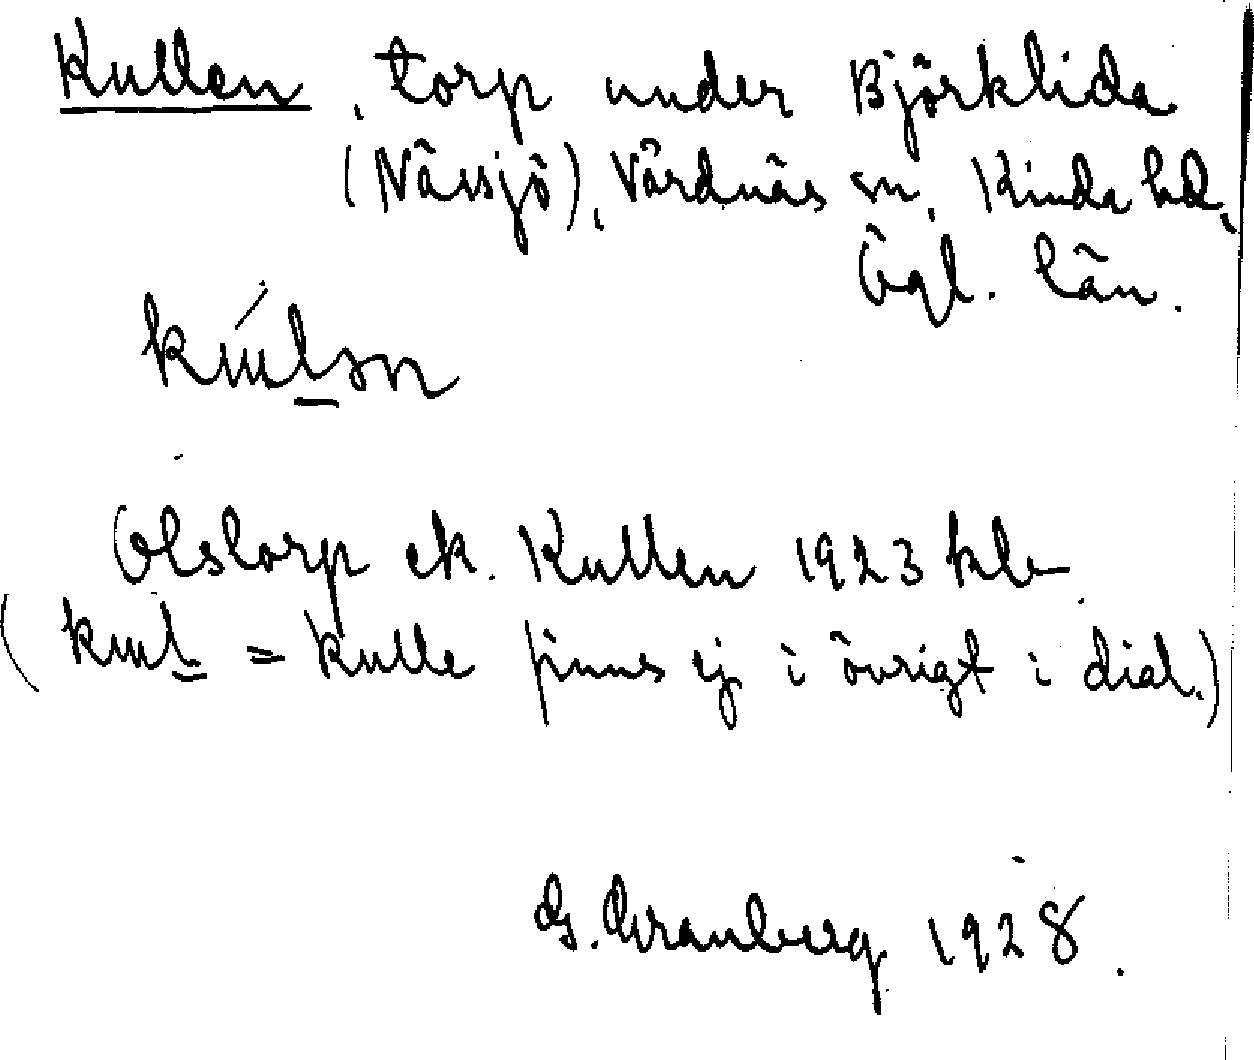 Kullen, torp under Björklida
(Nässjö), Vårdnäs sn, Kinda hd,
Ögl. län.
Olstorp ek. Kullen 1923 kb
= kulle finns ej i övrigt i dial.)
G. Granberg 1928.